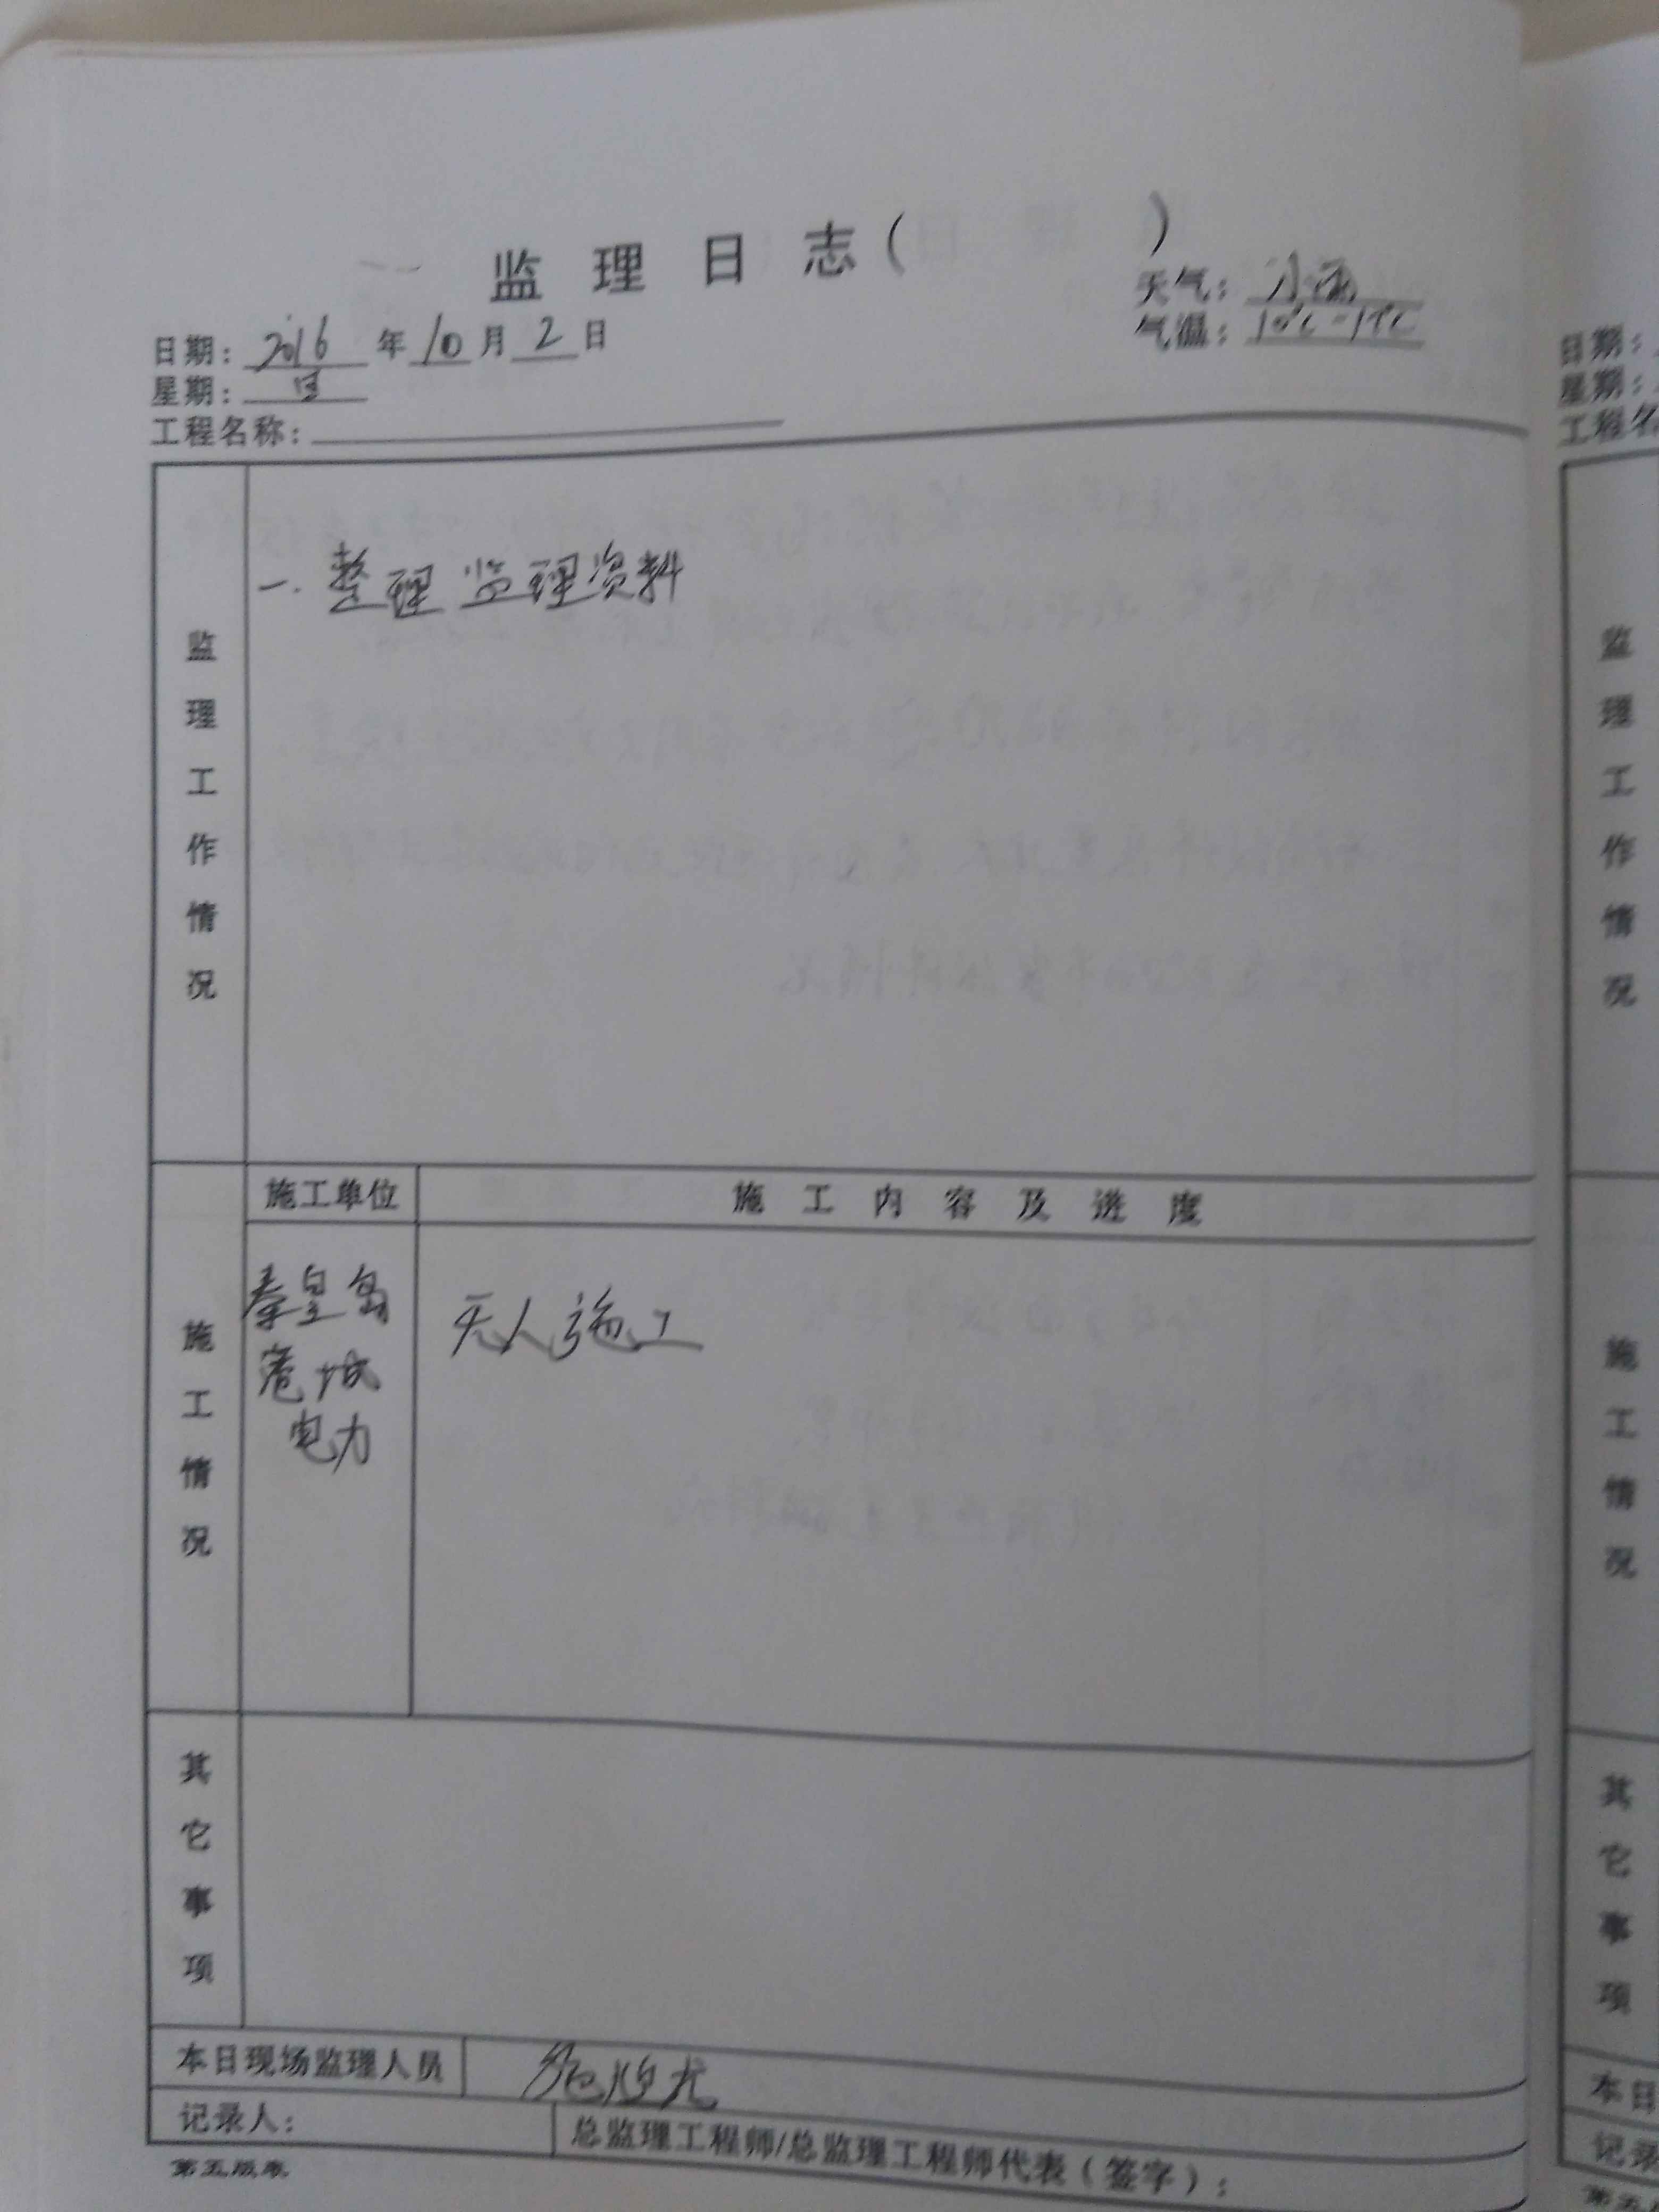 监理日志( )
天气：小雨
日期：2016年10月2日
气温：10℃-19℃
星期：日
工程名称：
监理工作情况
一. 整理监理资料
施工情况
施工单位
施工内容及进度
秦皇岛
港城
电力
无人施工
其它事项
本日现场监理人员
记录人：
总监理工程师/总监理工程师代表（签字）：
第五版表
日期：
星期：
工程名
监理工作情况
施工情况
其它事项
本日
记录